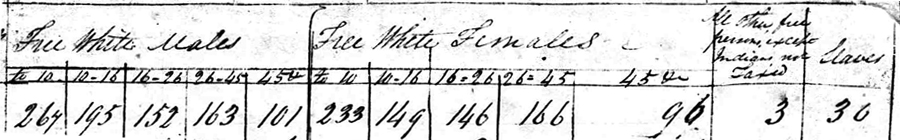 Free White Males Free White Females All other free persons, except Indians not Taxed Slaves
to 10 10-16 16-26 26-45 45& to 10 10-16 16-26 26-45 45&
264 195 152 163 101 233 149 146 166 96 3 30